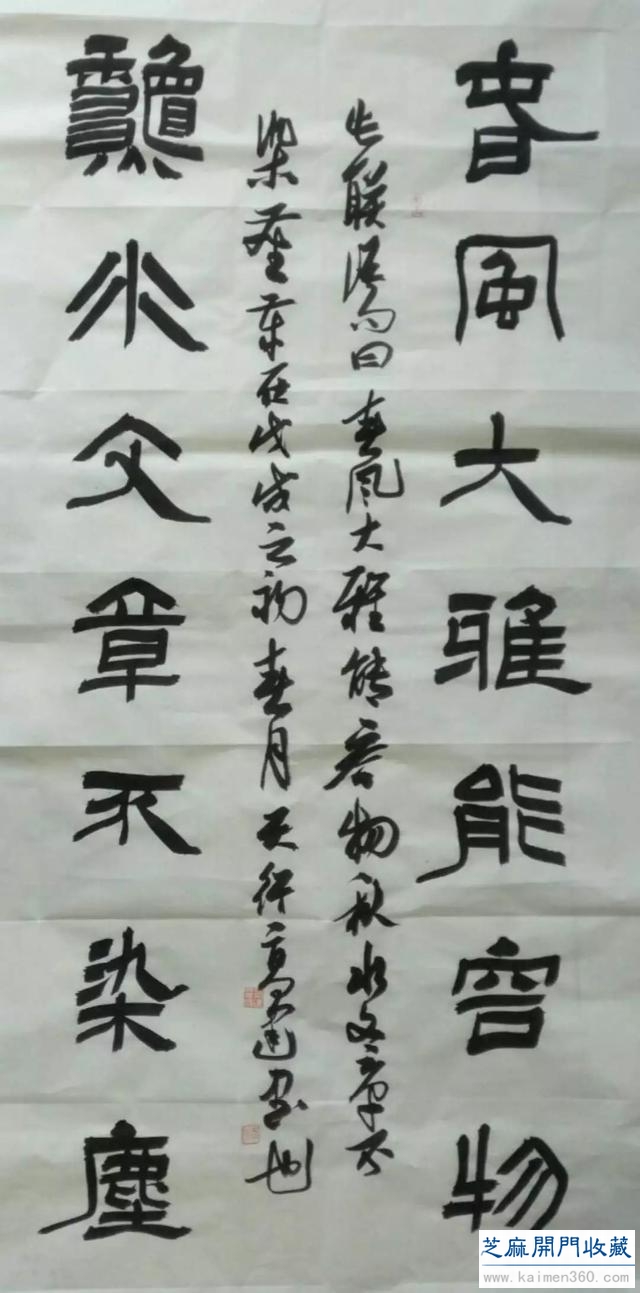 春風大雅能容物
联语句曰春风大雅能容物秋水文章不
染尘在戊戌之初春月天行高建书也
秋水文章不染塵
芝麻開門收藏
www.kaimen360.com